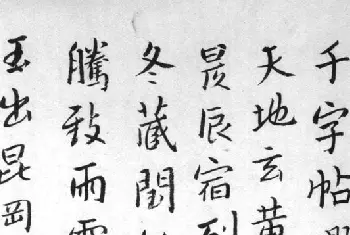 千字帖
天地玄黄
昃辰宿列
冬藏閏
騰致雨
玉出昆岡